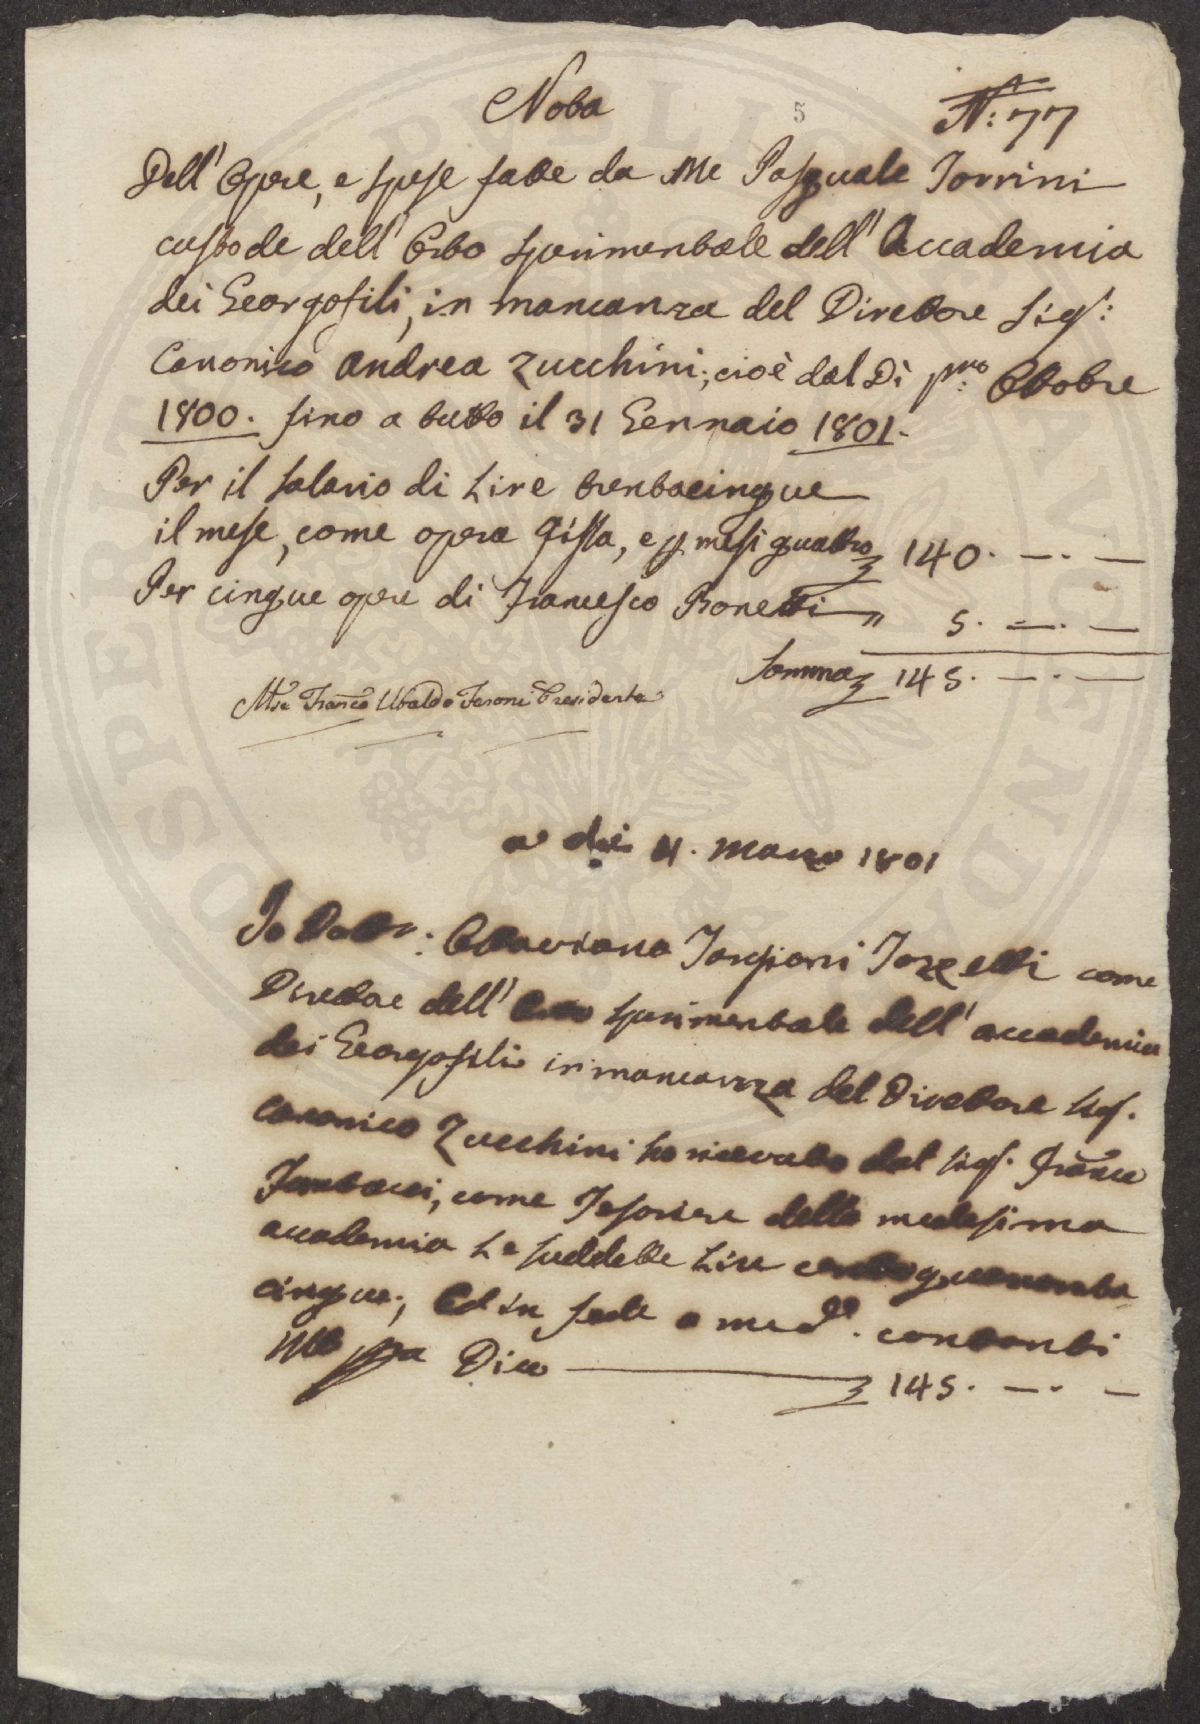 Nota
5
N: 77
Dell' Opere, e spese fatte da Me Pasquale Torrini
custode dell' Orto sperimentale dell' Accademia
dei Georgofili, in mancanza del Direttore Sig.:
Canonico Andrea Zucchini; cioè dal Dì pmo: Ottobre
1800. fino a tutto il 31 Gennaio 1801.
Per il salario di Lire trentacinque
il mese, come opera fissa, e p mesi quattro 140. —. —
Per cinque opere di Francesco Bonetti " 5. —. —
Somma 145. —. —
Mse Franco Ubaldo Feroni Presidente
a dì 4. Marzo 1801
Io Dottr: Ottaviano Targioni Tozzetti come
Direttore dell' Orto sperimentale dell' accademia
dei Georgofili in mancanza del Direttore Sig.
canonico Zucchini ho ricevuto dal Sig. Franco
Tartini, come Tesoriere della medesima
accademia Le suddette Lire centoquaranta
cinque; Ed in fede a med. contanti
Mo ppa Dico — 145. —. —